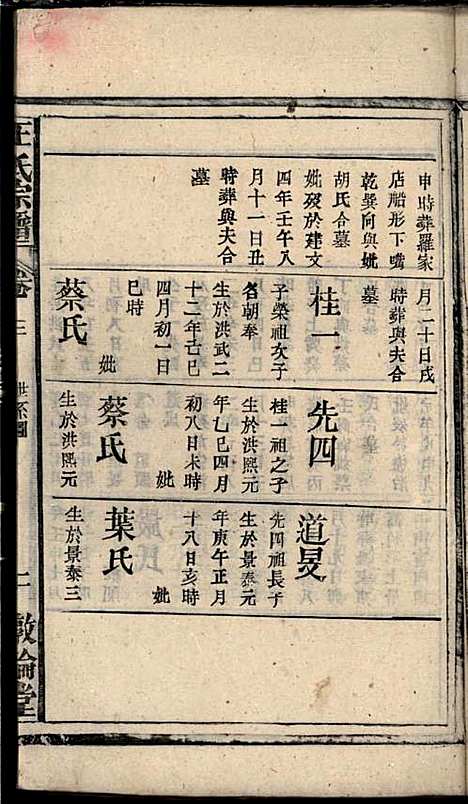 申時葬羅家
店船形下嘴
乾巽向與妣
胡氏合墓
妣歿於建文
四年壬午八
月十一日丑
時葬與夫合
墓
月二十日戌
時葬與夫合
墓
桂一
子榮祖次子
名朝奉
生於洪武二
十二年己巳
四月初一日
巳時
妣
蔡氏
先四
桂一祖之子
生於洪熙元
年乙巳四月
初八日未時
妣
蔡氏
生於洪熙元
道旻
先四祖長子
生於景泰元
年庚午正月
十八日亥時
妣
葉氏
生於景泰三
氏宗譜
世系圖
二
敦倫堂